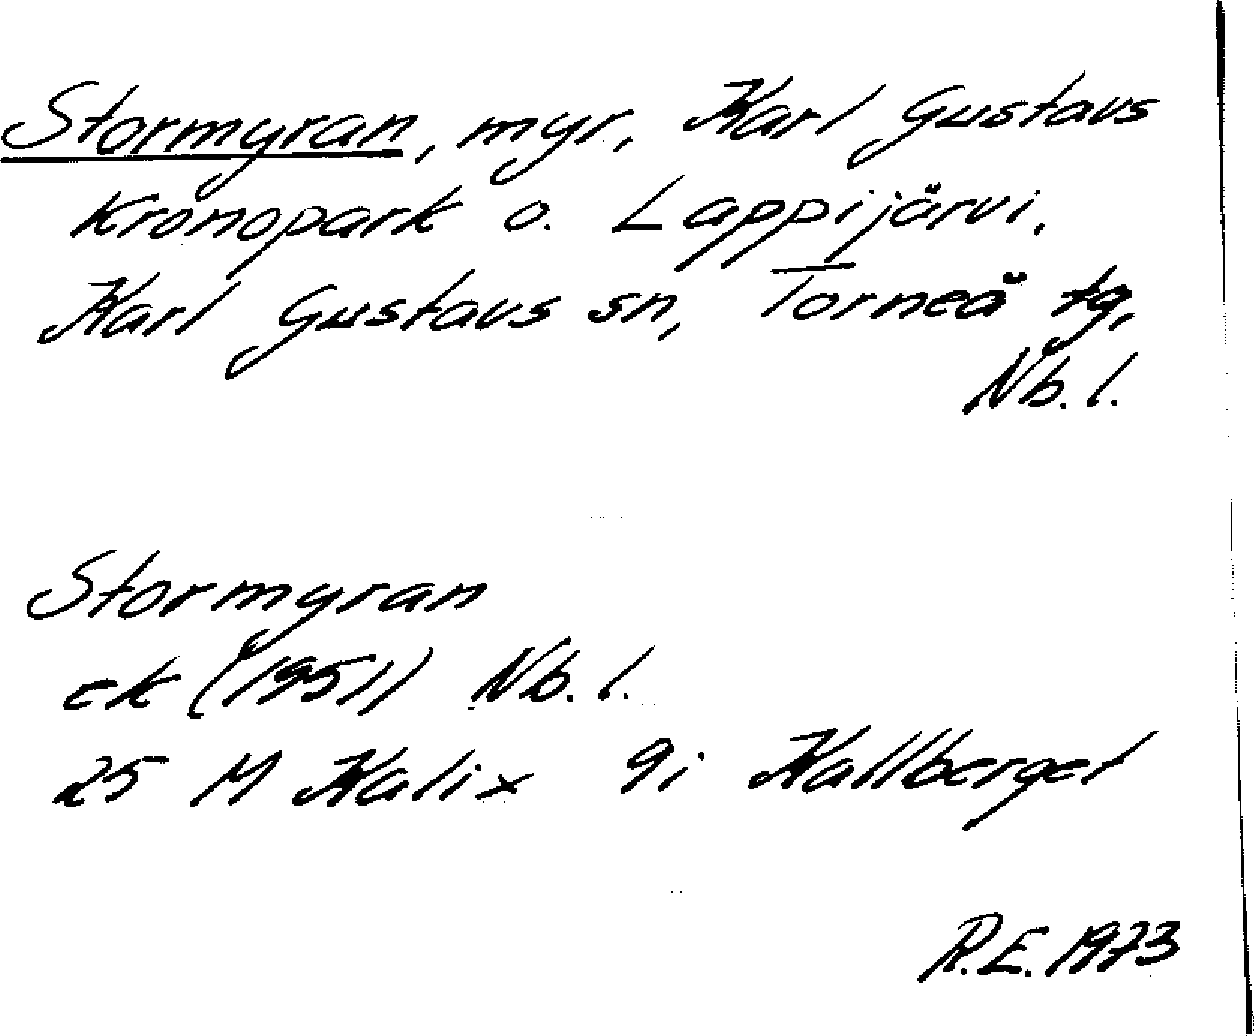 Stormyran, myr, Karl Gustavs
Kronopark o. Lappijärvi.
Karl Gustavs sn, Torneå tg,
Nb. l.
Stormyran
ek (1951) Nb. l.
25 M Kalix 9i Kallberget
R.E. 1973